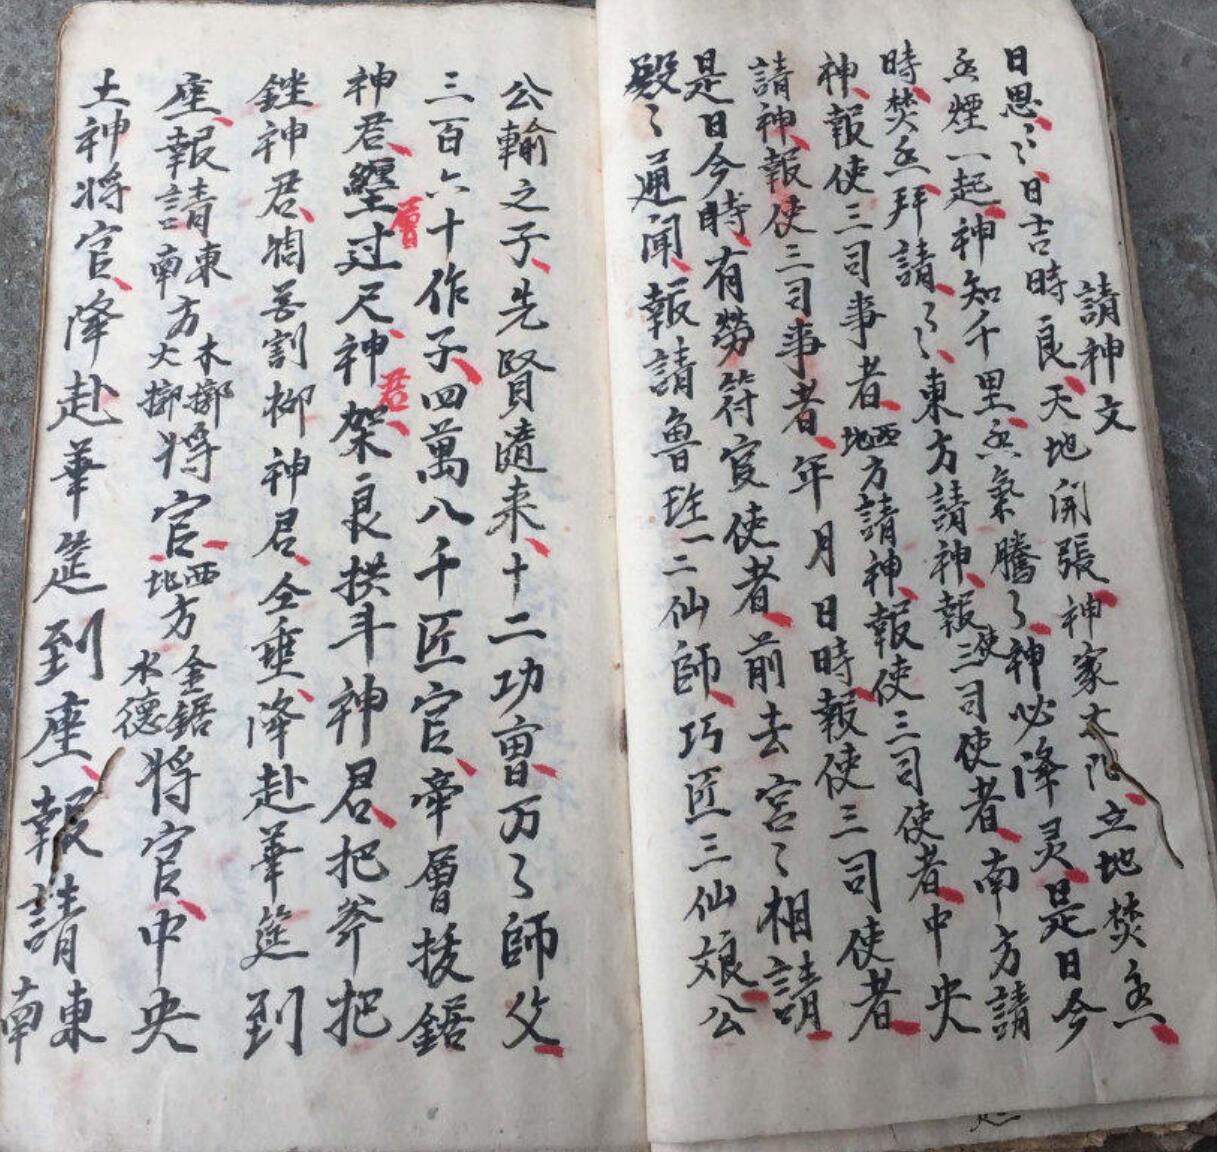 請神文
日思〻、日吉時良、天地開張、神家太陽、立地焚𤆬、
𤆬煙一起、神知千里、𤆬氣騰〻、神必降灵、是日今
時、焚𤆬拜請、〻、東方請神、報使三司使者、南方請
神、報使三司事者、西地方請神、報使三司使者、中央
請神、報使三司事者、年月日時、報使三司使者、
是日今時、有勞符官使者、前去宮〻相請、
殿〻通聞、報請魯班一二仙師、巧匠三仙娘、公
公輸之子、先賢随来、十二功曹、万〻師父、
三百六十作子、四萬八千匠官、牵層拔鋸
神君、經过尺神君、架良拱斗神君、把斧把
銼神君、周善割柳神君、仝垂降赴華筵到
座、報請東南方木擲火擲将官、西地方金鋸水德将官、中央
土神将官、降赴華筵到座、報請東南